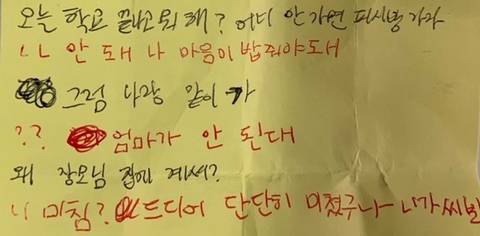 오늘 학교 끝나고 뭐 해? 어디 안 가면 피시방 가자
ㄴㄴ 안 돼 나 마음이 밥줘야돼서
그럼 나랑 같이 가
?? 엄마가 안 된대
왜 장모님 집에 계셔?
니 미침? 드디어 단단히 미쳤구나 니가 씨발